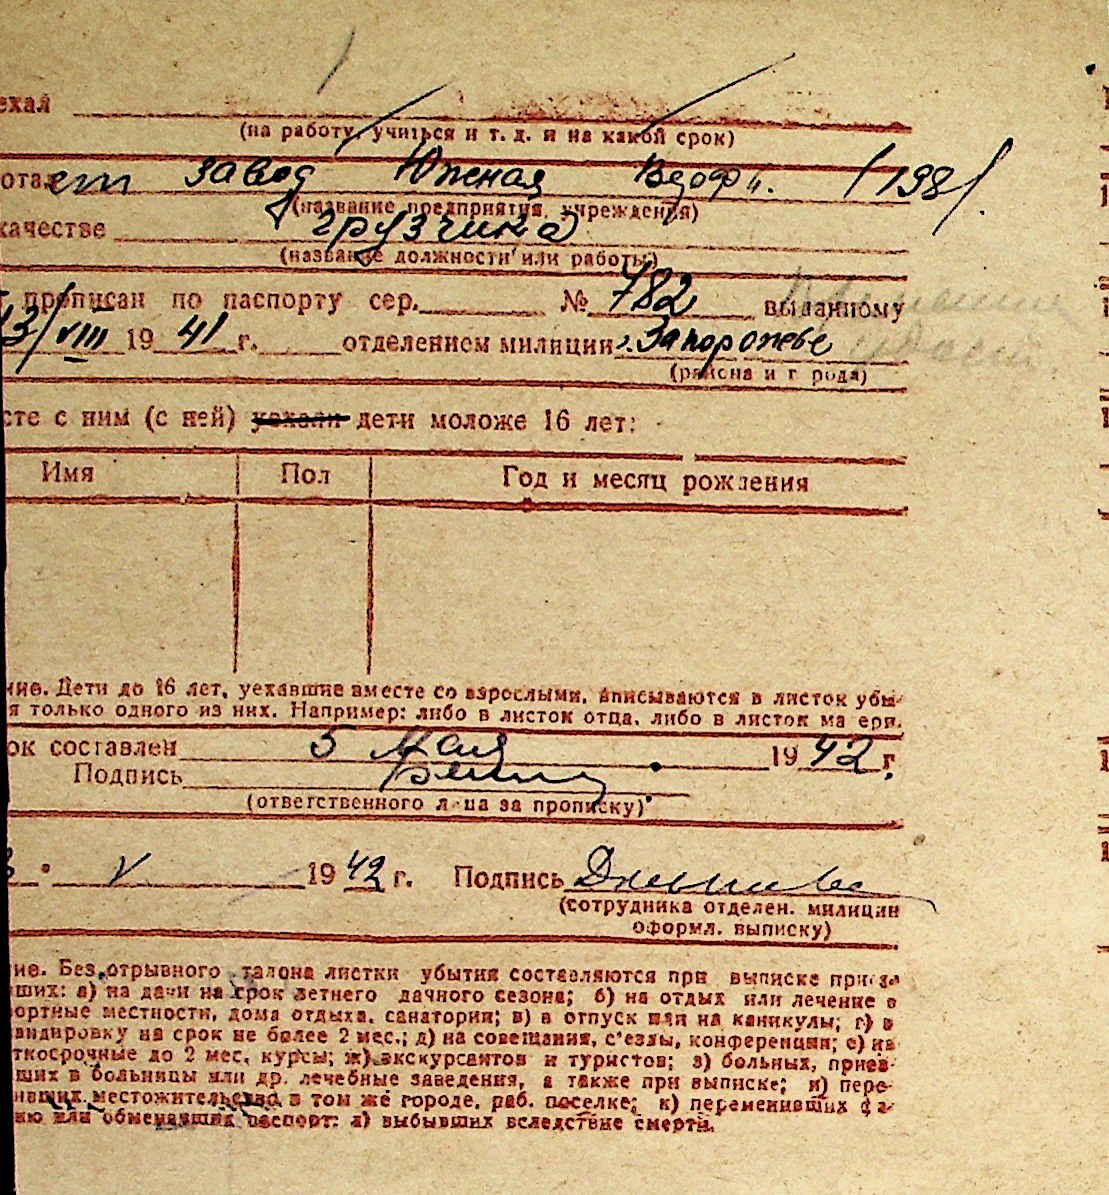 ехал
(на работу, учиться и т. д. и на какой срок)
отает завод Южная /198/
(название предприятия, учреждения)
качестве грузчика
(название должности или работы)
прописан по паспорту сер. № 782 выданному
13/VIII 1941 г. отделением милиции г. Запорожье
(района и г рода)
сте с ним (с ней) уехали дети моложе 16 лет:
Имя Пол Год и месяц рождения
ние. Дети до 16 лет, уехавшие вместе со взрослыми, вписываются в листок убы-
я только одного из них. Например: либо в листок отца, либо в листок ма ери.
ок составлен 5 мая 1942 г.
Подпись
(ответственного л ца за прописку)
V 1942 г. Подпись
(сотрудника отделен. милиции
оформл. выписку)
ие. Без отрывного талона листки убытия составляются при выписке приез-
ших: а) на дачи на срок летнего дачного сезона; б) на отдых или лечение в
ортные местности, дома отдыха, санатории; в) в отпуск или на каникулы; г) в
андировку на срок не более 2 мес.; д) на совещания, с'езды, конференции; е) на
ткосрочные до 2 мес. курсы; ж) экскурсантов и туристов; з) больных, приез-
ших в больницы или др. лечебные заведения, а также при выписке; и) пере-
нивших местожительство в том же городе, раб. поселке; к) переменивших фа-
ию или обменявших паспорт: л) выбывших вследствие смерти.